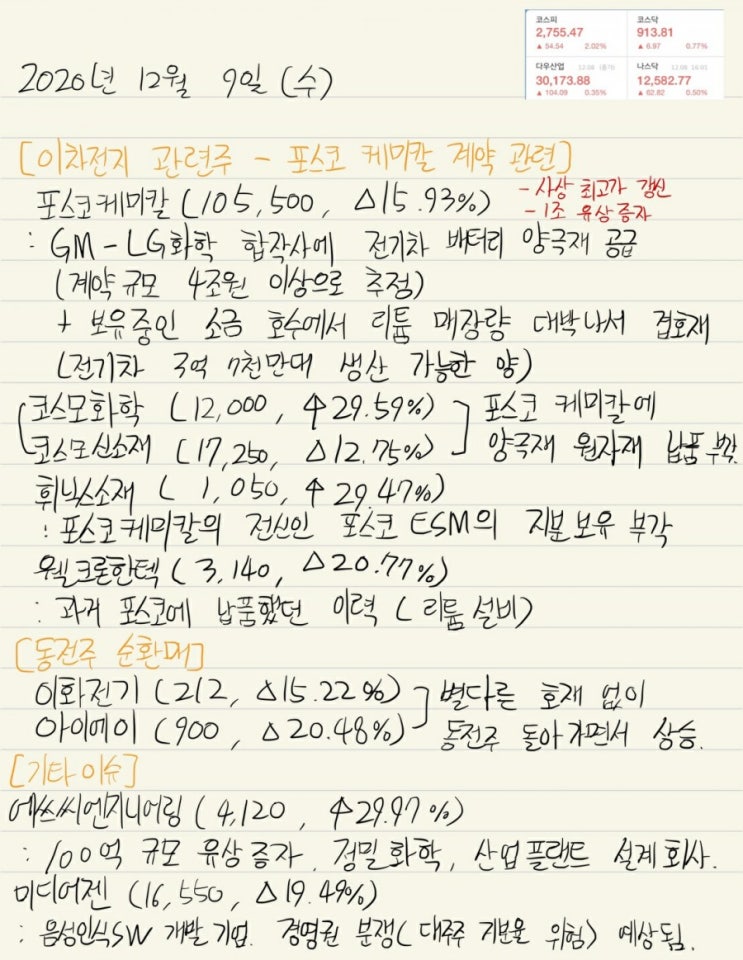 코스피 코스닥
2,755.47 913.81
▲ 54.54 2.02% ▲ 6.97 0.77%
다우산업 12.08 나스닥 12.08 16:01
30,173.88 12,582.77
▲ 104.09 0.35% ▲ 62.82 0.50%
2020년 12월 9일 (수)
[이차전지 관련주 - 포스코 케미칼 계약 관련]
포스코케미칼 (105,500, △15.93%) - 사상 최고가 갱신
- 1조 유상증자
: GM-LG화학 합작사에 전기차 배터리 양극재 공급
(계약규모 4조원 이상으로 추정)
+ 보유중인 소금 호수에서 리튬 매장량 대박나서 겹호재
(전기차 3억 7천만대 생산 가능한 양)
코스모화학 (12,000, ↑29.59%) 포스코 케미칼에
코스모신소재 (17,250, △12.75%) 양극재 원자재 납품 부각.
휘닉스소재 (1,050, ↑29.47%)
: 포스코케미칼의 전신인 포스코ESM의 지분보유 부각
웰크론한텍 (3,140, △20.77%)
: 과거 포스코에 납품했던 이력 (리튬설비)
[동전주 순환매]
이화전기 (212, △15.22%) 별다른 호재 없이
아이에이 (900, △20.48%) 동전주 돌아가면서 상승.
[기타이슈]
에쓰씨엔지니어링 (4,120, ↑29.97%)
: 100억 규모 유상증자. 정밀화학, 산업플랜트 설계회사.
미디어젠 (16,550, △19.49%)
: 음성인식SW 개발기업. 경영권 분쟁(대주주 지분율 위험) 예상됨.